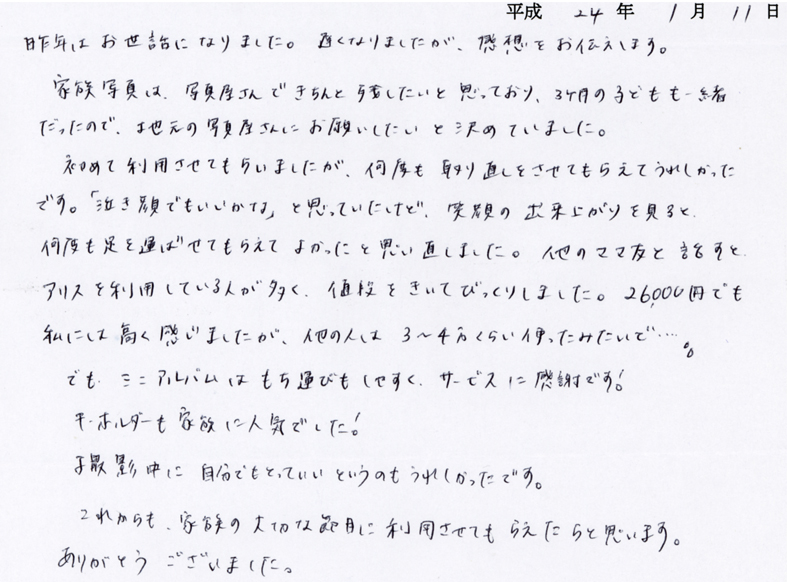 平成 24 年 1 月 11 日
昨年はお世話になりました。遅くなりましたが、感想をお伝えします。
家族写真は、写真屋さんできちんと残したいと思っており、3ヶ月の子どもも一緒
だったので、地元の写真屋さんにお願いしたいと決めていました。
初めて利用させてもらいましたが、何度も取り直しをさせてもらえてうれしかった
です。「泣き顔でもいいかな」と思っていたけど、笑顔の出来上がりを見ると、
何度も足を運ばせてもらえてよかったと思い直しました。他のママ友と話すと
アリスを利用している人が多く、値段をきいてびっくりしました。26,000円でも
私には高く感じましたが、他の人は3~4万くらい使ったみたいで…。
でも、ミニアルバムはもち運びもしやすく、サービスに感謝です!
キーホルダーも家族に人気でした!
撮影中に自分でもとっていいというのもうれしかったです。
これからも、家族の大切な節目に利用させてもらえたらと思います。
ありがとうございました。